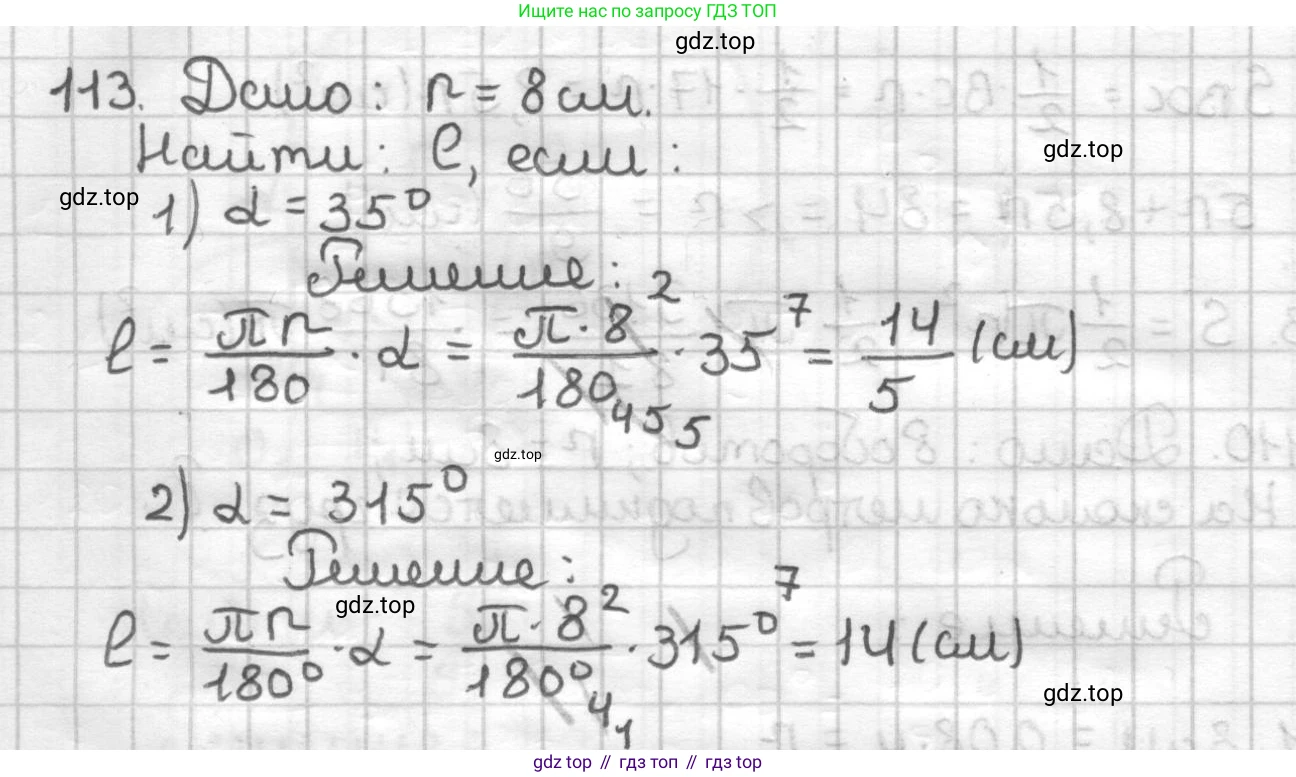 Ищите нас по запросу ГДЗ ТОП
gdz.top
113. Дано: r = 8 см.
Найти: l, если:
gdz.top
gdz.top
1) α = 35°
Решение:
l = πr/180 · α = π·8²/180 45 5 · 35⁷ = 14/5 (см)
gdz.top
2) α = 315°
Решение:
gdz.top
l = πr/180° · α = π·8²/180° 4 1 · 315°⁷ = 14 (см)
gdz.top
gdz.top // гдз топ // gdz top